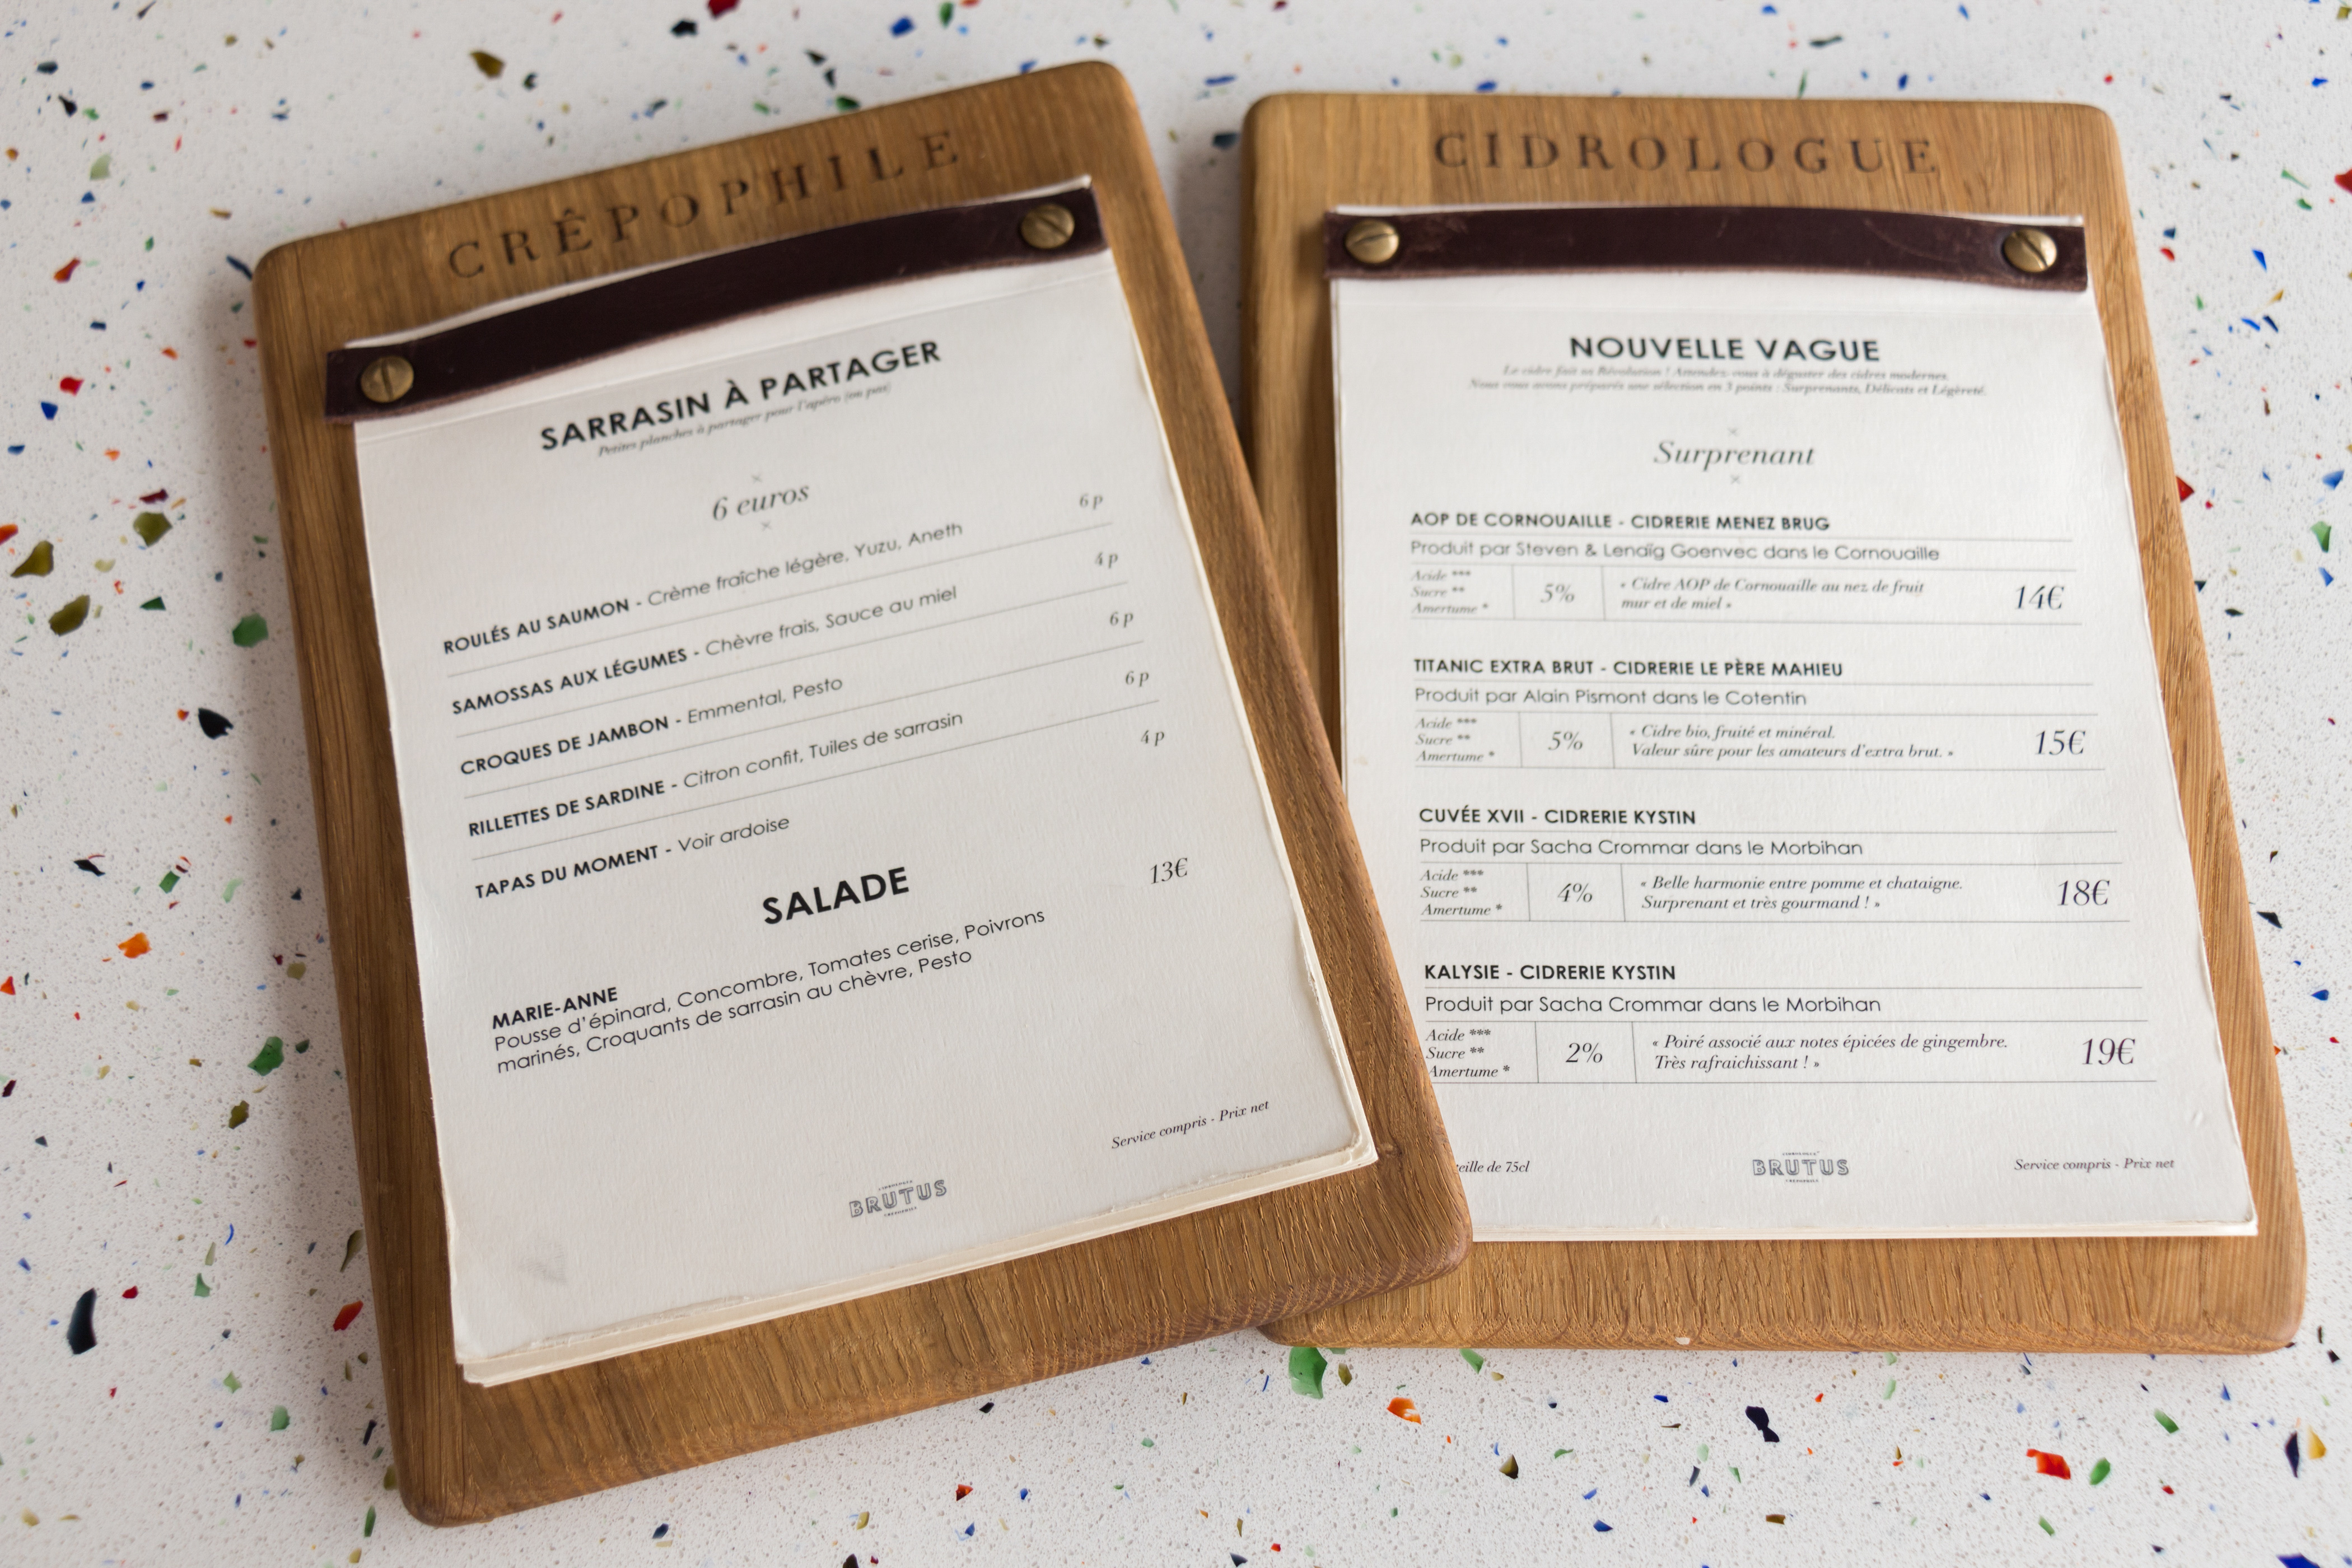 CRÊPOPHILE
SARRASIN À PARTAGER
Petites planches à partager pour l'apéro (ou pas)
6 euros
ROULÉS AU SAUMON - Crème fraîche légère, Yuzu, Aneth 6 p
SAMOSSAS AUX LÉGUMES - Chèvre frais, Sauce au miel 4 p
CROQUES DE JAMBON - Emmental, Pesto 6 p
RILLETTES DE SARDINE - Citron confit, Tuiles de sarrasin 6 p
TAPAS DU MOMENT - Voir ardoise 4 p
SALADE
13€
MARIE-ANNE
Pousse d'épinard, Concombre, Tomates cerise, Poivrons
marinés, Croquants de sarrasin au chèvre, Pesto
Service compris - Prix net
BRUTUS
CIDROLOGUE
NOUVELLE VAGUE
Le cidre fait sa Révolution ! Attendez-vous à déguster des cidres modernes.
Nous vous avons préparés une sélection en 3 points : Surprenants, Délicats et Légèreté.
Surprenant
AOP DE CORNOUAILLE - CIDRERIE MENEZ BRUG
Produit par Steven & Lenaïg Goenvec dans le Cornouaille
Acide ***
Sucre **
Amertume *
5%
« Cidre AOP de Cornouaille au nez de fruit
mur et de miel »
14€
TITANIC EXTRA BRUT - CIDRERIE LE PÈRE MAHIEU
Produit par Alain Pismont dans le Cotentin
Acide ***
Sucre **
Amertume *
5%
« Cidre bio, fruité et minéral.
Valeur sûre pour les amateurs d'extra brut. »
15€
CUVÉE XVII - CIDRERIE KYSTIN
Produit par Sacha Crommar dans le Morbihan
Acide ***
Sucre **
Amertume *
4%
« Belle harmonie entre pomme et chataigne.
Surprenant et très gourmand ! »
18€
KALYSIE - CIDRERIE KYSTIN
Produit par Sacha Crommar dans le Morbihan
Acide ***
Sucre **
Amertume *
2%
« Poiré associé aux notes épicées de gingembre.
Très rafraichissant ! »
19€
eille de 75cl
BRUTUS
Service compris - Prix net